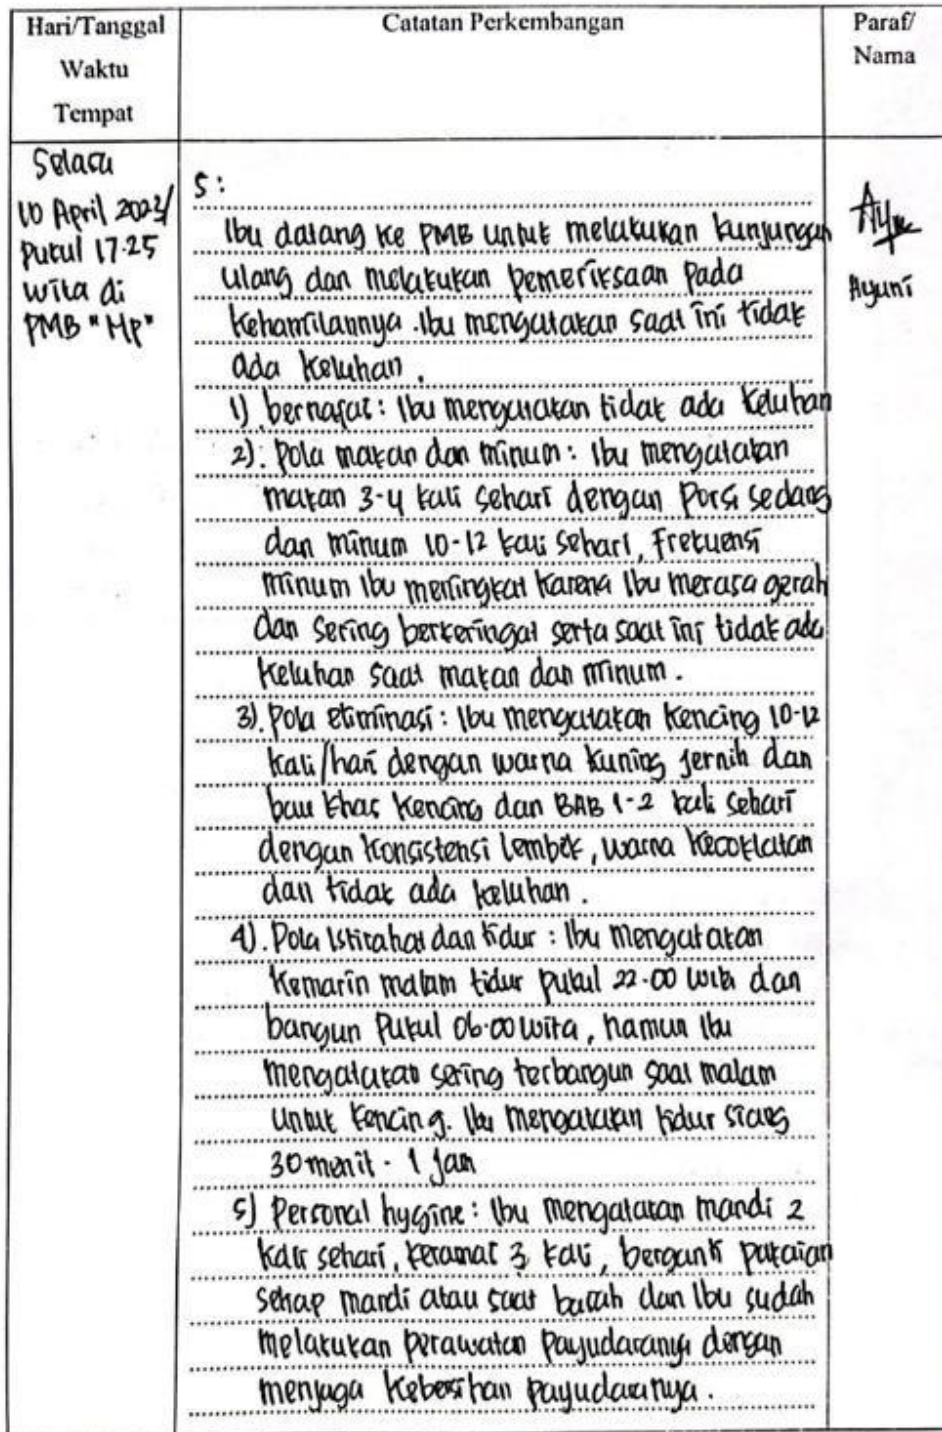 Hari/Tanggal
Waktu
Tempat
Catatan Perkembangan
Paraf/
Nama
Selasa
10 April 2023/
Pukul 17.25
wita di
PMB "Hp"
S:
Ibu datang ke PMB untuk melakukan kunjungan
ulang dan melakukan pemeriksaan pada
Kehamilannya. Ibu mengatakan saat ini tidak
ada keluhan.
1) bernafas: Ibu mengatakan tidak ada keluhan
2). Pola makan dan minum: Ibu mengatakan
makan 3-4 kali sehari dengan porsi sedang
dan minum 10-12 kali sehari, frekuensi
minum Ibu meningkat karena Ibu merasa gerah
dan sering berkeringat serta saat ini tidak ada
keluhan saat makan dan minum.
3). Pola eliminasi: Ibu mengatakan kencing 10-12
kali/hari dengan warna kuning jernih dan
bau khas kencing dan BAB 1-2 kali sehari
dengan konsistensi lembek, warna kecoklatan
dan tidak ada keluhan.
4). Pola Istirahat dan tidur: Ibu mengatakan
kemarin malam tidur pukul 22.00 wita dan
bangun pukul 06.00 wita, namun Ibu
mengatakan sering terbangun saat malam
untuk kencing. Ibu mengatakan tidur siang
30 menit - 1 jam
5) Personal hygine: Ibu mengatakan mandi 2
kali sehari, keramas 3 kali, berganti pakaian
setiap mandi atau saat basah dan Ibu sudah
melakukan perawatan payudaranya dengan
menjaga kebersihan payudaranya.
Ayuni